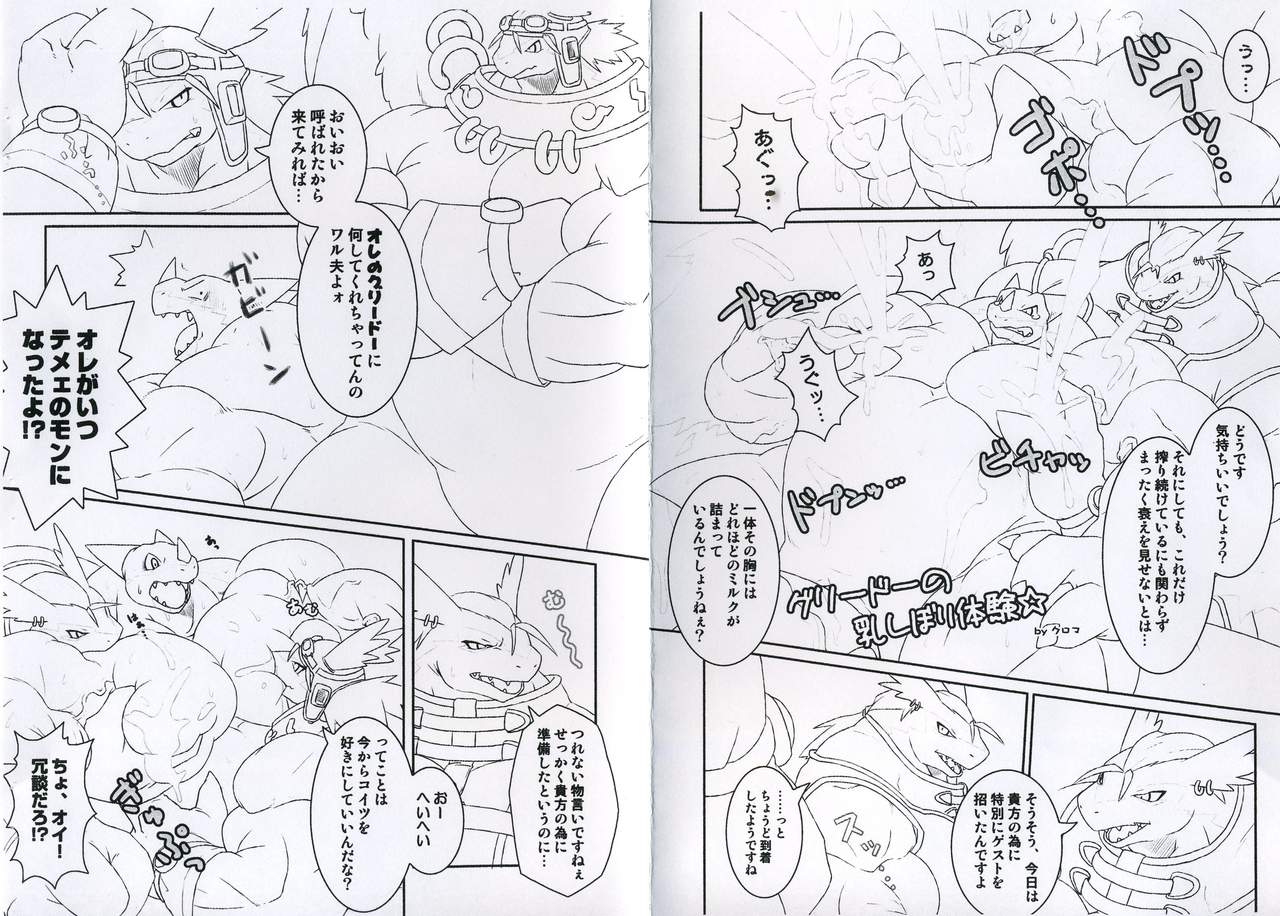 うっ…
ドプッ…
ゴポ…
あぐっ…
あっ
ブシュ…
うぐッ…
どうです
気持ちいいでしょう？
それにしても、これだけ
搾り続けているにも関わらず
まったく衰えを見せないとは…
ビチャッ
ドプンッ…
一体その胸には
どれほどのミルクが
詰まって
いるんでしょうねぇ？
グリードーの
乳しぼり体験☆
by クロマ
そうそう、今日は
貴方の為に
特別にゲストを
招いたんですよ
……っと
ちょうど到着
したようですね
スッ…
おいおい
呼ばれたから
来てみれば…
オレのグリードーに
何してくれちゃってんの
ワル夫よォ
ガビーン
オレがいつ
テメェのモンに
なったよ!?
む〜〜
つれない物言いですねぇ
せっかく貴方の為に
準備したというのに…
おー
へいへい
ってことは
今からコイツを
好きにしていいんだな？
あっ
あむっ
ちょ、オイ！
冗談だろ!?